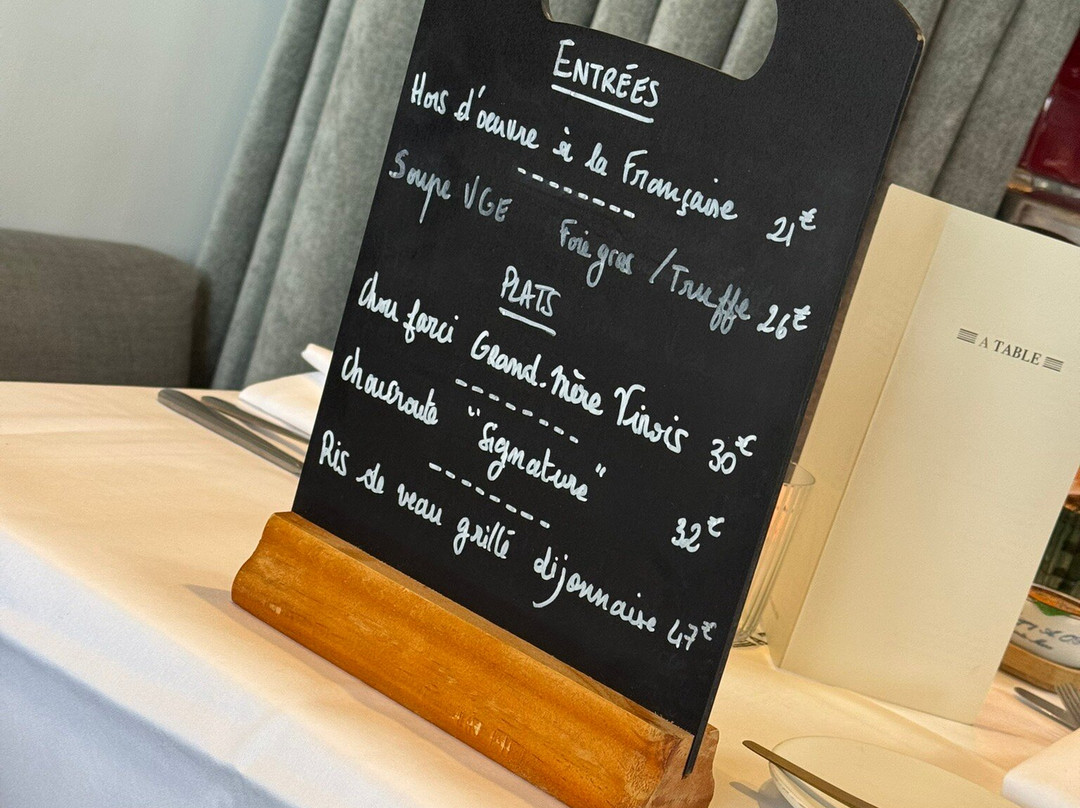 ENTRÉES
Hors d'oeuvre à la Française 21€
Soupe VGE Foie gras / Truffe 26€
PLATS
Chou farci Grand-Mère Virois 30€
Choucroute "Signature" 32€
Ris de veau grillé dijonnaise 47€
A TABLE